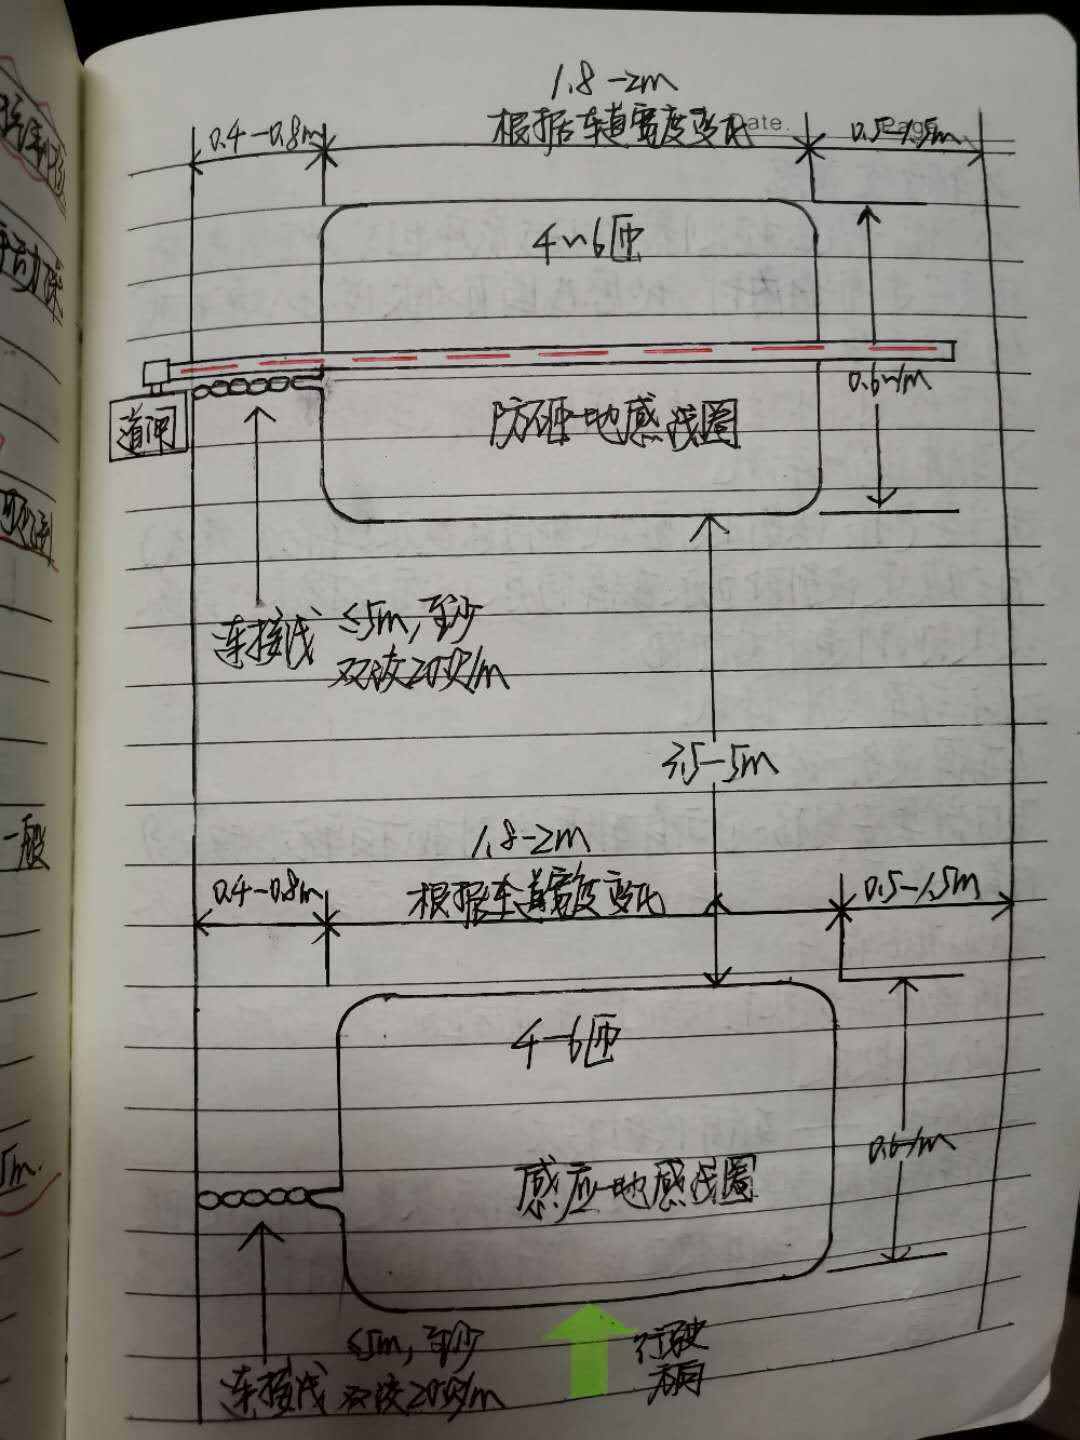 1.8-2m
根据车道宽度变化
0.4-0.8m
Date.
Page.
0.5-1.5m
4~6匝
0.6~1m
道闸
防砸地感线圈
连接线 ≤5m,至少
双绞20次/m
3.5-5m
1.8-2m
0.4-0.8m
根据车道宽度变化
0.5-1.5m
4-6匝
0.6-1m
感应地感线圈
≤5m,至少
连接线 双绞20次/m
行驶
方向
手动
一般
5m.